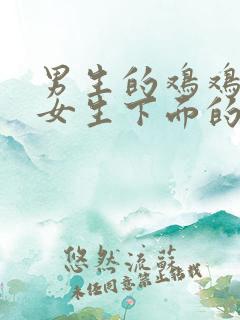 男生的鸡鸡
女生下面的
悠然流苏
未经同意禁止转载